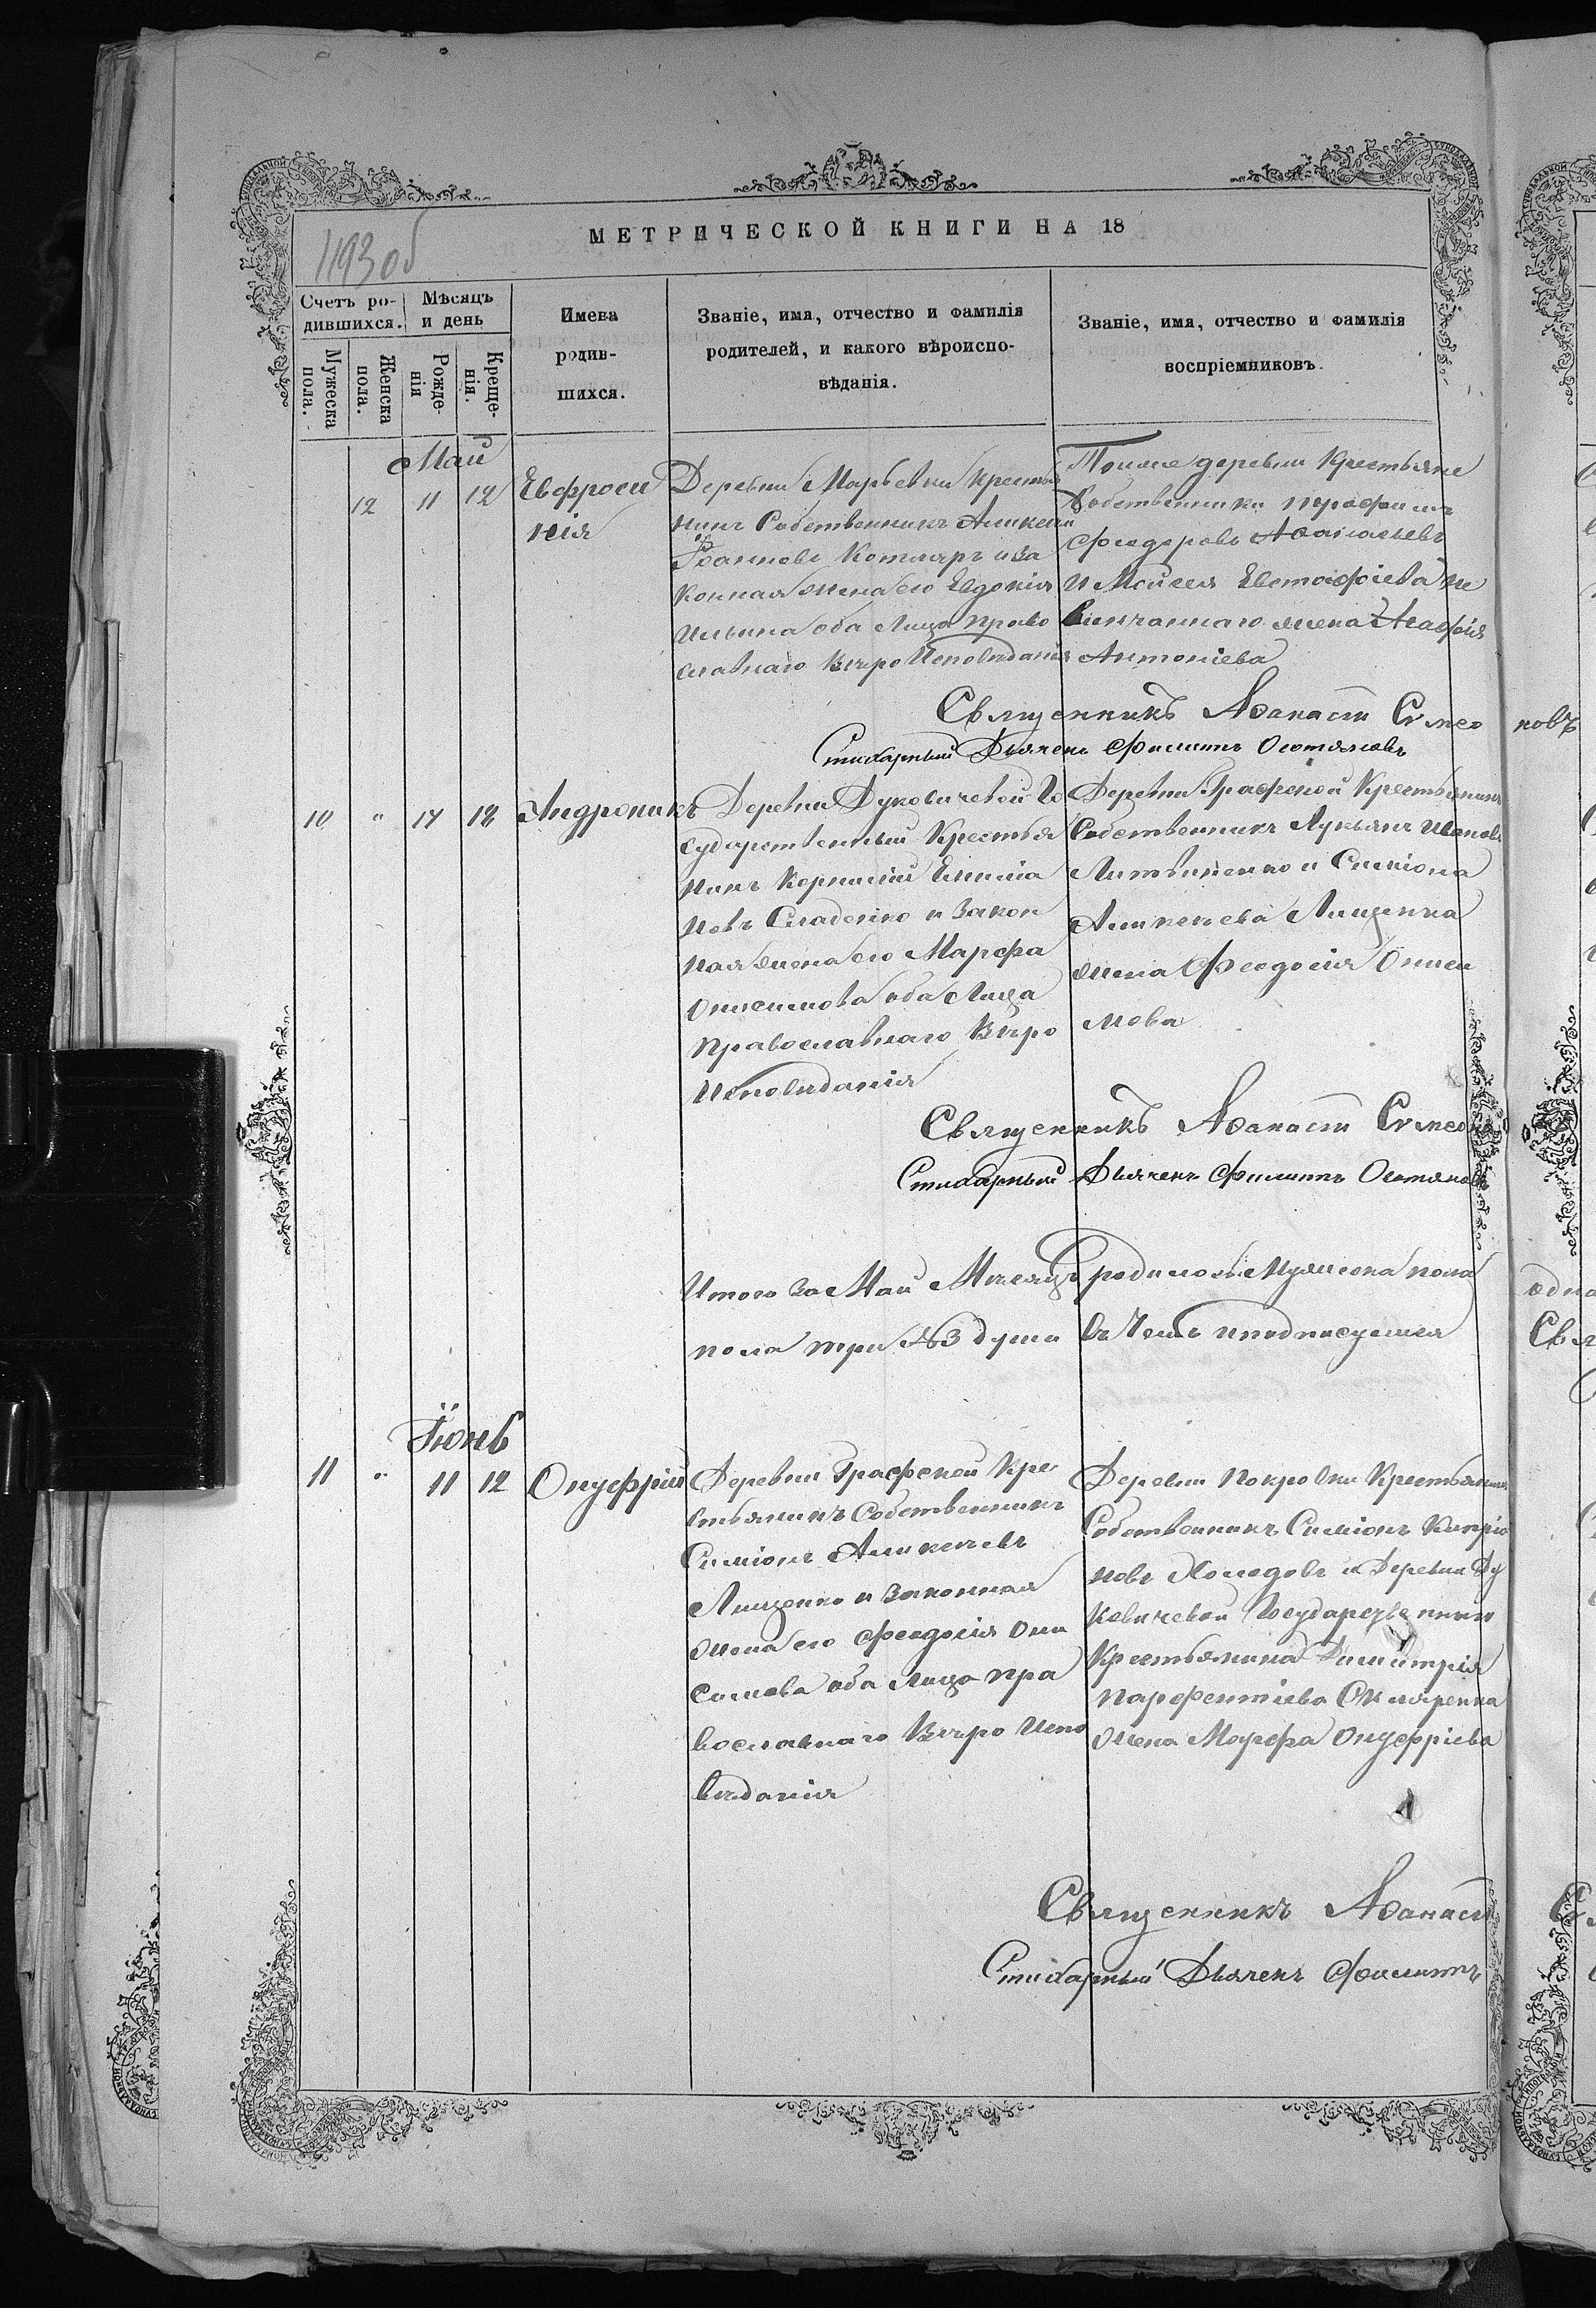 1193 об
МЕТРИЧЕСКОЙ КНИГИ НА 18
Счетъ ро-
дившихся.
Мѣсяцъ
и день
Имена
родив-
шихся.
Званіе, имя, отчество и фамилія
родителей, и какого вѣроиспо-
вѣданія.
Званіе, имя, отчество и фамилія
воспріемниковъ.
Мужеска
пола.
Женска
пола.
Рожде-
нія
Креще-
нія.
Май
12 11 12
Евфроси
нія
Деревни Марьевки крестья
нинъ Собственникъ
Іоанновъ Котляръ и за
конная жена его Евдокія
Ильина оба лица право
славнаго вѣро Исповѣданія
Тойже деревни Крестьяне
Собственники
Феодоровъ
и Моисея Евстафіева Не
винчаннаго жена Агафія
Антоніева
Священникъ Аѳанасій Симео
новъ
Стихарный Дьячекъ Филиппъ Остяковъ
10 " 17 18
Андроникъ
Деревни Дуковичевой Го
сударственный Крестья
нинъ Корнилій Емилиа
новъ Сладенко и Закон
ная жена его Марфа
Онисимова оба Лица
Православнаго Вѣро
Исповѣданія
Деревни Графской Крестьянинъ
Собственникъ Лукьянъ Ивановъ
Литвиненко и Симіона
Аникеева Лищенка
жена Феодосія Ониси
мова
Священникъ Аѳанасій Симеоно
Стихарный Дьячекъ Филиппъ Остяковъ
Итого за Май Мѣсяцъ родилось Мужеска пола
одна
пола три №3 души въ Чемъ и подписуемся
Свя
Іюнь
11 " 11 12
Онуфрій
Деревни Графской Кре
стьянинъ Собственникъ
Симіонъ Аникеевъ
Лищенко и Законная
жена его Феодосія Они
симова оба Лица пра
вославнаго Вѣро Испо
вѣданія
Деревни Покровки Крестьянинъ
Собственникъ Симіонъ Кипріа
новъ Холодовъ и Деревни Ду
ковичевой Государственнаго
Крестьянина Димитрія
Парфентіева Скляренка
жена Марфа Онуфріева
Священникъ Аѳанасій
Стихарный Дьячекъ Филиппъ